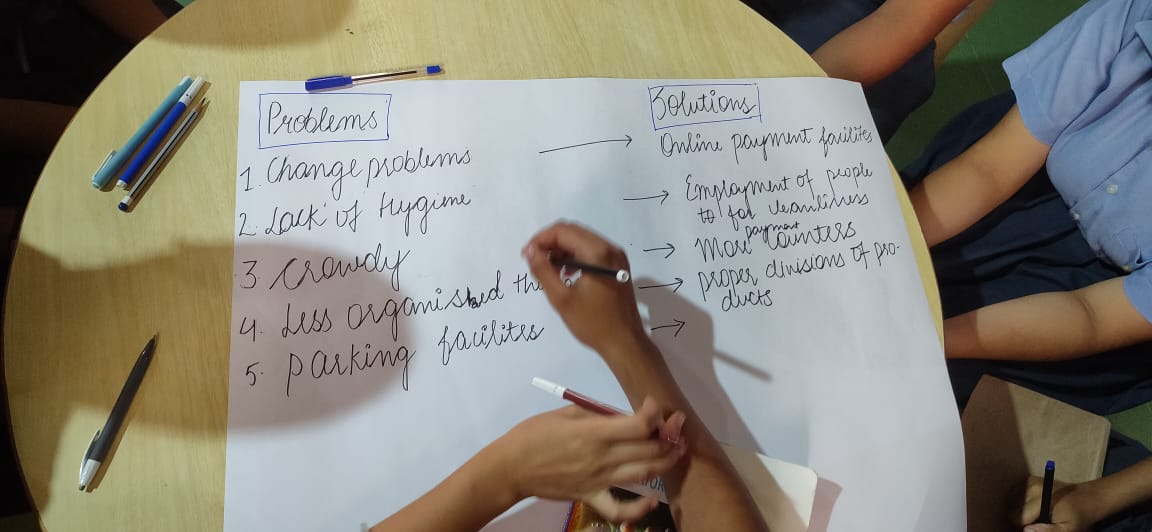 Problems
Solutions
1. Change problems → Online payment facilites
2. Lack of Hygiene → Employment of people
to for cleanliness
3. Crowdy → More payment Counters
4. Less organised → proper divisions of pro-
ducts
5. parking facilites →